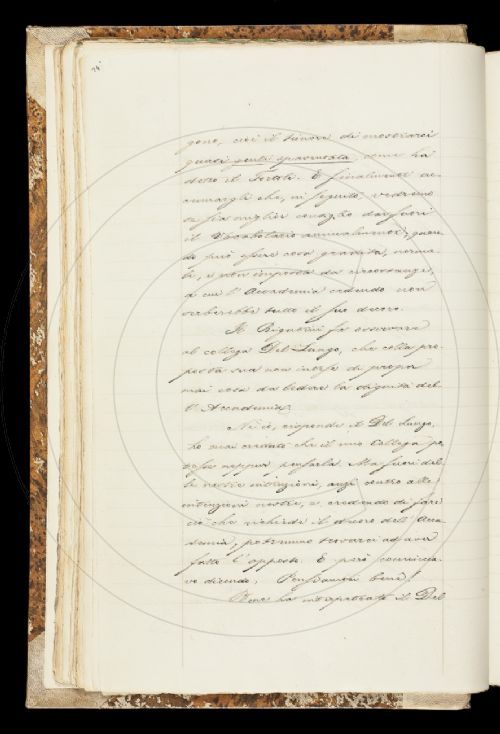 74
gono, cioè il timore di mostrarci
quasi gente spaventata, come ha
detto il Tortoli. E finalmente ac-
che, in seguito, vedremo
se sia miglior consiglio dar fuori
il Vocabolario annualmente, quan-
do può esser cosa gradita,
e non imposta da circostanze,
a cui l'Accademia cedendo non
serberebbe tutto il suo decoro.
Il Rigutini fa osservare
al collega Del Lungo, che colla pro-
posta sua non intese di proporre
mai cosa da ledere la dignità del-
l'Accademia.
Nè io, risponde il Del Lungo,
ho mai creduto che il mio Collega po-
tesse neppur pensarla. Ma fuori del-
le nostre intenzioni, anzi contro alle
intenzioni nostre, e credendo di fare
ciò che richiede il decoro dell'Acca-
demia, potremmo trovarci ad aver
fatto l'opposto. E però
dicendo, Pensiamoci bene!
Bene ha interpretato il Del